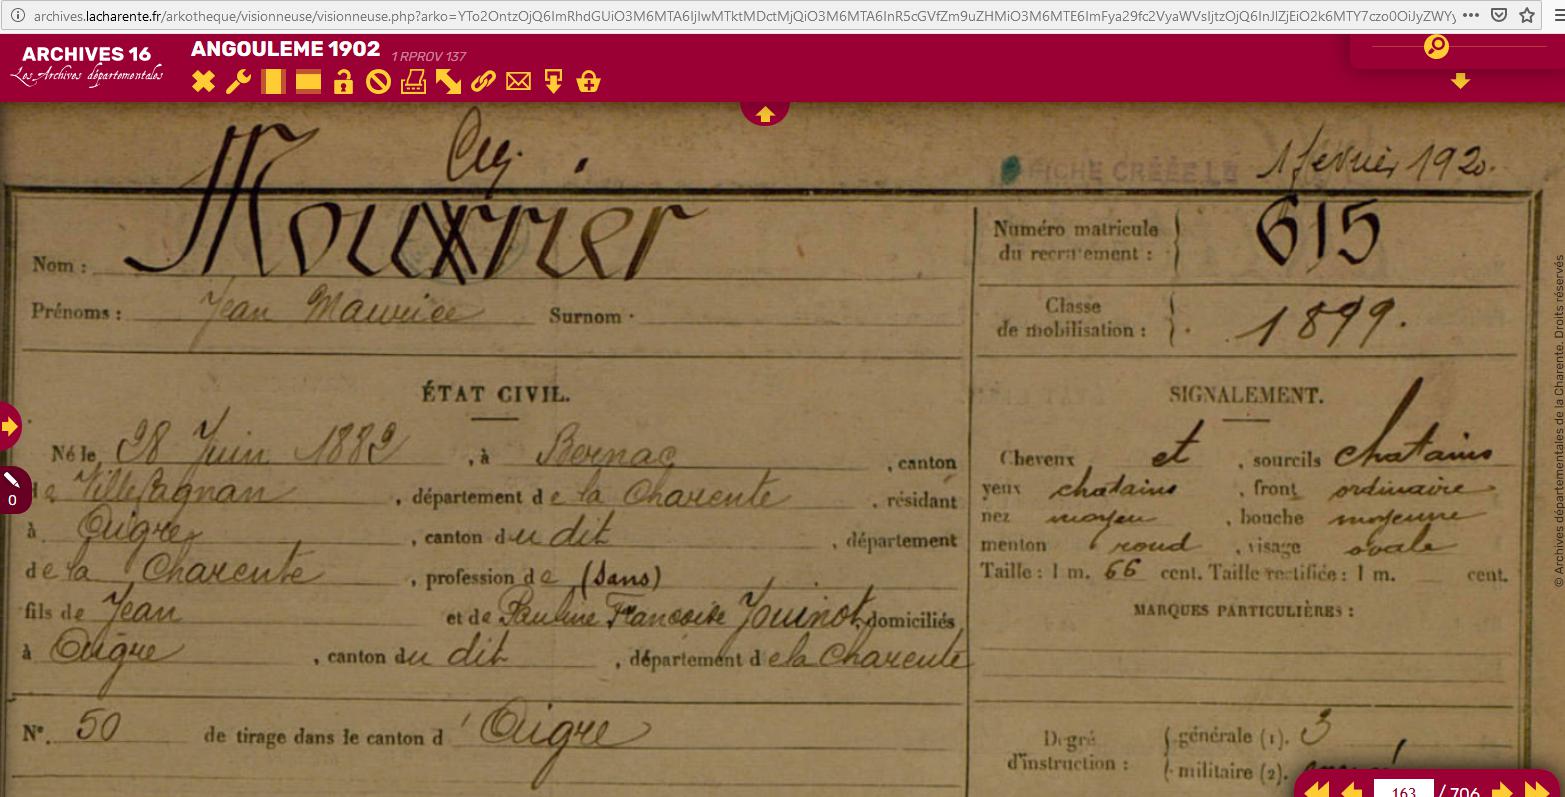 archives.lacharente.fr/arkotheque/visionneuse/visionneuse.php?arko=
ARCHIVES 16
Les Archives départementales
ANGOULEME 1902
1 RPROV 137
FICHE CRÉÉE LE 1 fevrier 1920.
Nom : Mouxrier
Numéro matricule du recrutement : 615
Prénoms : Jean Maurice Surnom
Classe de mobilisation : 1899.
ÉTAT CIVIL.
SIGNALEMENT.
Né le 28 Juin 1882, à Bernac, canton
de Villefagnan, département de la Charente, résidant
à Aigre, canton du dit, département
de la Charente, profession de (sans)
fils de Jean et de Pauline Francoise Jouinot, domiciliés
à Aigre, canton du dit, département de la Charente
Cheveux et, sourcils chatains
yeux chatains, front ordinaire
nez moyen, bouche moyenne
menton rond, visage ovale
Taille : 1 m. 66 cent. Taille rectifiée : 1 m. cent.
MARQUES PARTICULIÈRES :
N°. 50 de tirage dans le canton d'Aigre
Degré d'instruction : générale (1). 3
militaire (2).
163 / 706
0
© Archives départementales de la Charente. Droits réservés